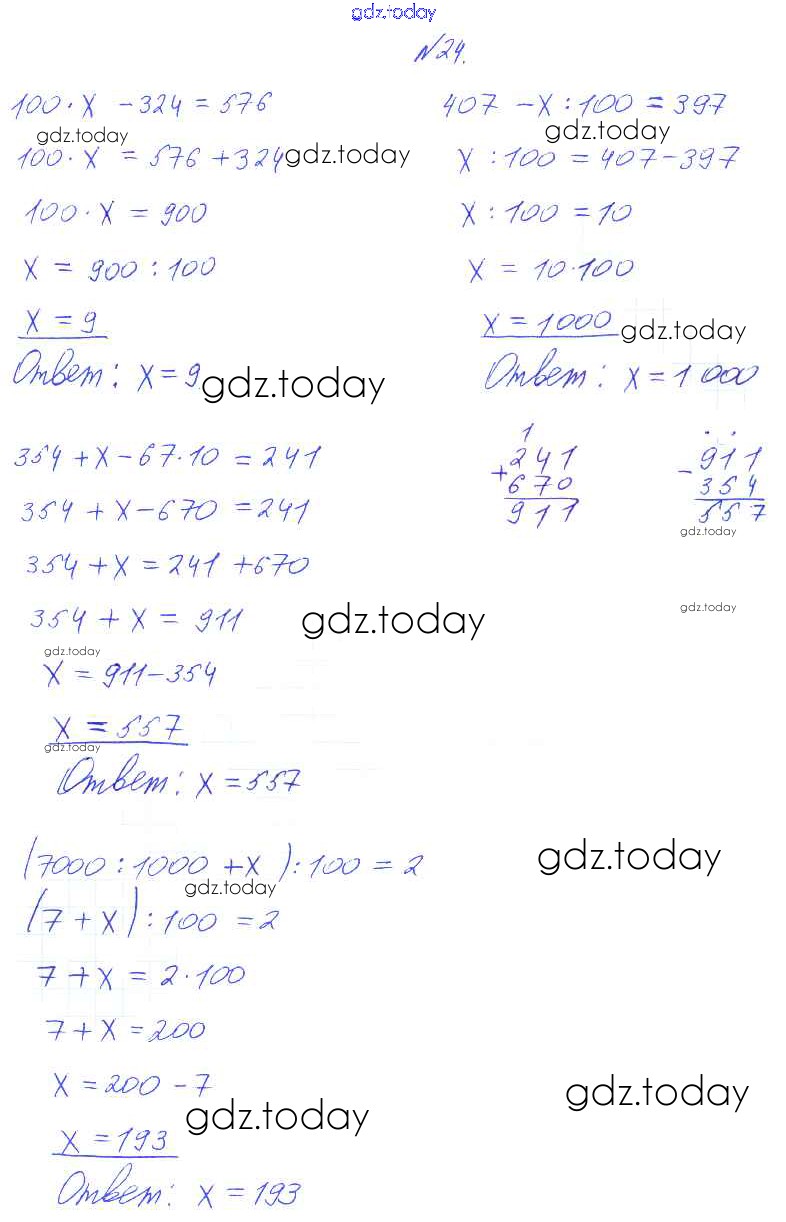 gdz.today
№24.
100·x - 324 = 576
gdz.today
100·x = 576 + 324
100·x = 900
x = 900 : 100
x = 9
Ответ: x = 9
gdz.today
407 - x : 100 = 397
gdz.today
x : 100 = 407 - 397
x : 100 = 10
x = 10·100
x = 1000
gdz.today
Ответ: x = 1 000
gdz.today
354 + x - 67·10 = 241
354 + x - 670 = 241
354 + x = 241 + 670
354 + x = 911
gdz.today
gdz.today
x = 911 - 354
x = 557
gdz.today
Ответ: x = 557
1
+ 241
670
911
. .
- 911
354
557
gdz.today
gdz.today
(7000 : 1000 + x) : 100 = 2
gdz.today
gdz.today
(7 + x) : 100 = 2
7 + x = 2·100
7 + x = 200
x = 200 - 7
gdz.today
gdz.today
x = 193
Ответ: x = 193